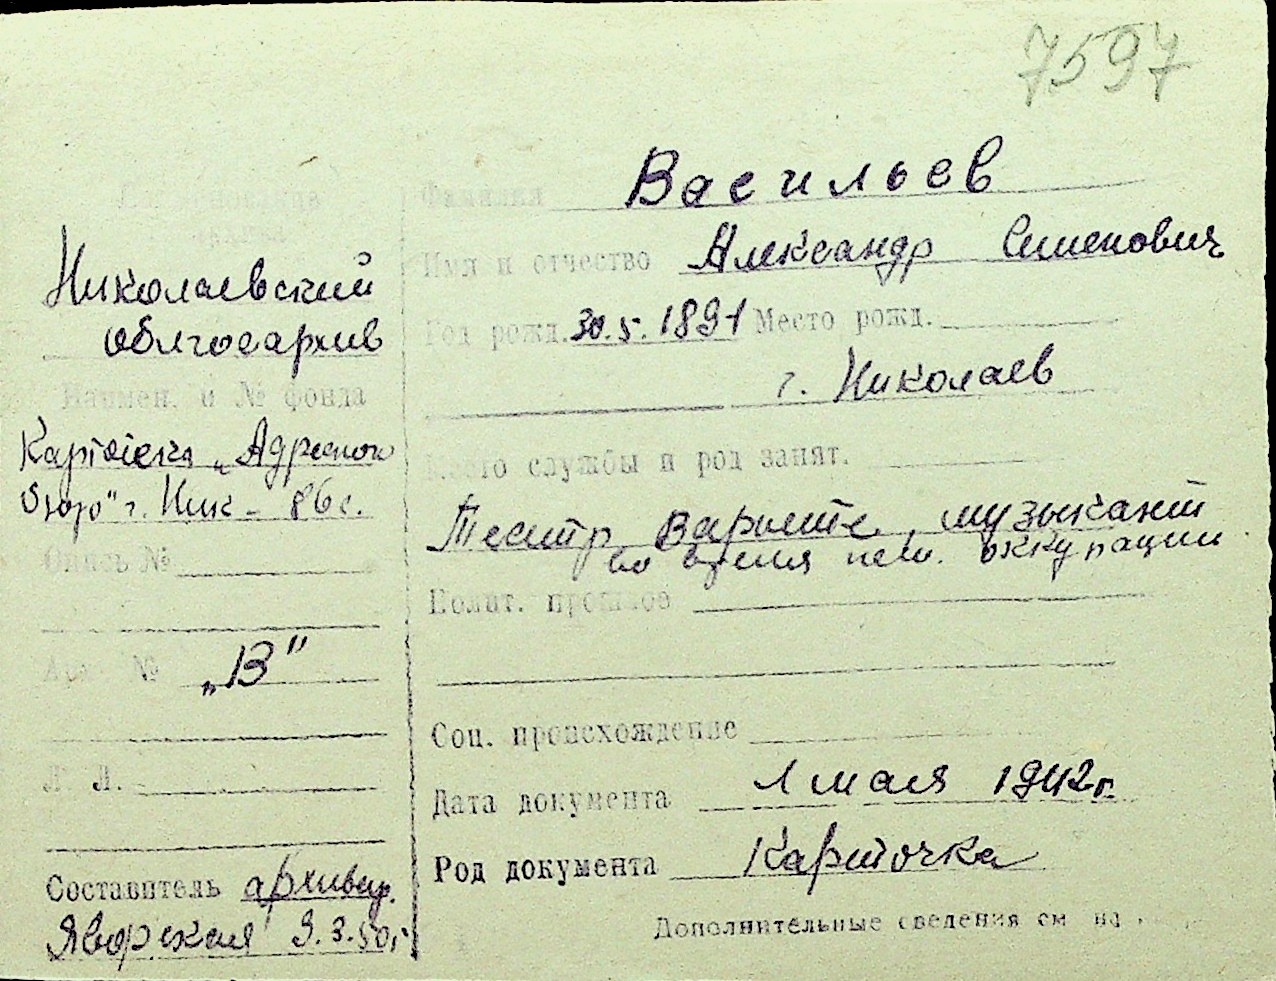 7597
Наименование
архива
Николаевский
облгосархив
Наимен. и № фонда
Картотека „Адресного
бюро" г. Ник - 86 с.
Опись №
Арх. № „В"
Л. Л.
Составитель архивар.
Яворская 9.3.50 г.
Фамилия Васильев
Имя и отчество Александр Семенович
Год рожд. 30.5.1891 Место рожд.
г. Николаев
Место службы и род занят.
Театр Варьете, музыкант
во время нем. оккупации
Полит. прошлое
Соц. происхождение
Дата документа 1 мая 1942 г.
Род документа Карточка
Дополнительные сведения см на